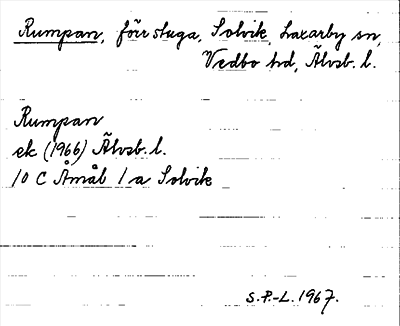 Rumpan, förr stuga, Solvik, Laxarby sn,
Vedbo hd, Älvsb. l.
Rumpan
ek (1966) Älvsb. l.
10 C Åmål 1 a Solvik
S.P.-L. 1967.